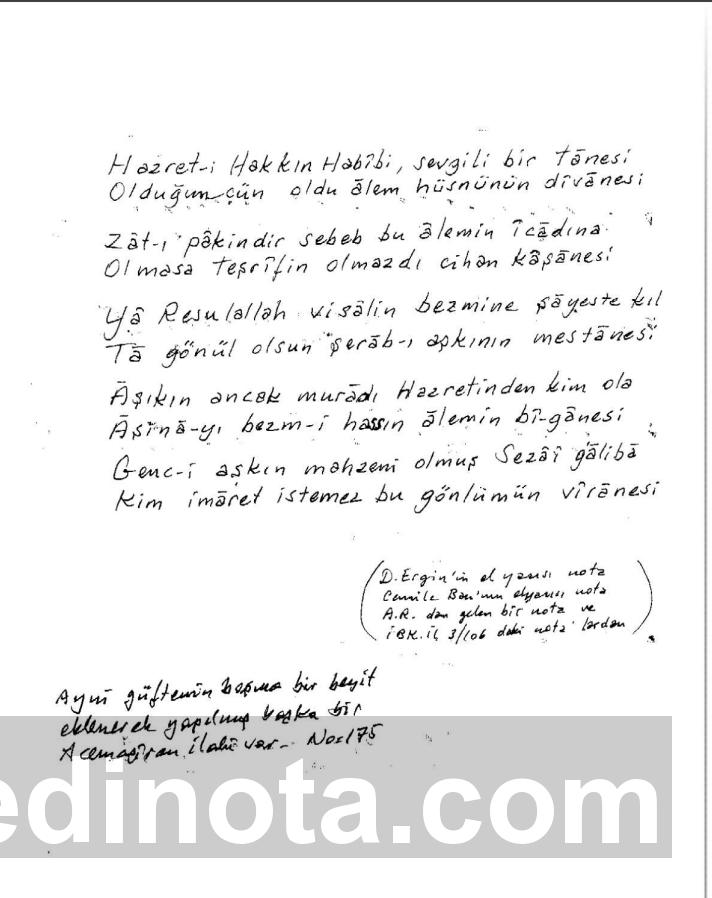 Hazret-i Hakkın Habîbi, sevgili bir tānesi
Olduğunçün oldu ālem hüsnünün dîvānesi
Zāt-ı pâkindir sebeb bu âlemin îcādına
Olmasa teşrîfin olmazdı cihan kâşānesi
Yâ Resulallah visâlin bezmine şāyeste kıl
Tā gönül olsun şerāb-ı aşkının mestānesi
Āşıkın ancak murādı Hazretinden kim ola
Āşînā-yı bezm-i hassın ālemin bî-gānesi
Genc-i aşkın mahzeni olmuş Sezāî gālibā
Kim imāret istemez bu gönlümün vîrānesi
(D. Ergin'in el yazısı nota
Camile Ban'nun elyazısı nota
A.R. dan gelen bir nota ve
İBK. İL 3/106 daki nota'lardan)
Aynı güftenin başına bir beyit
eklenerek yapılmış başka bir
Acemaşîran ilahî var- No:175
edinota.com